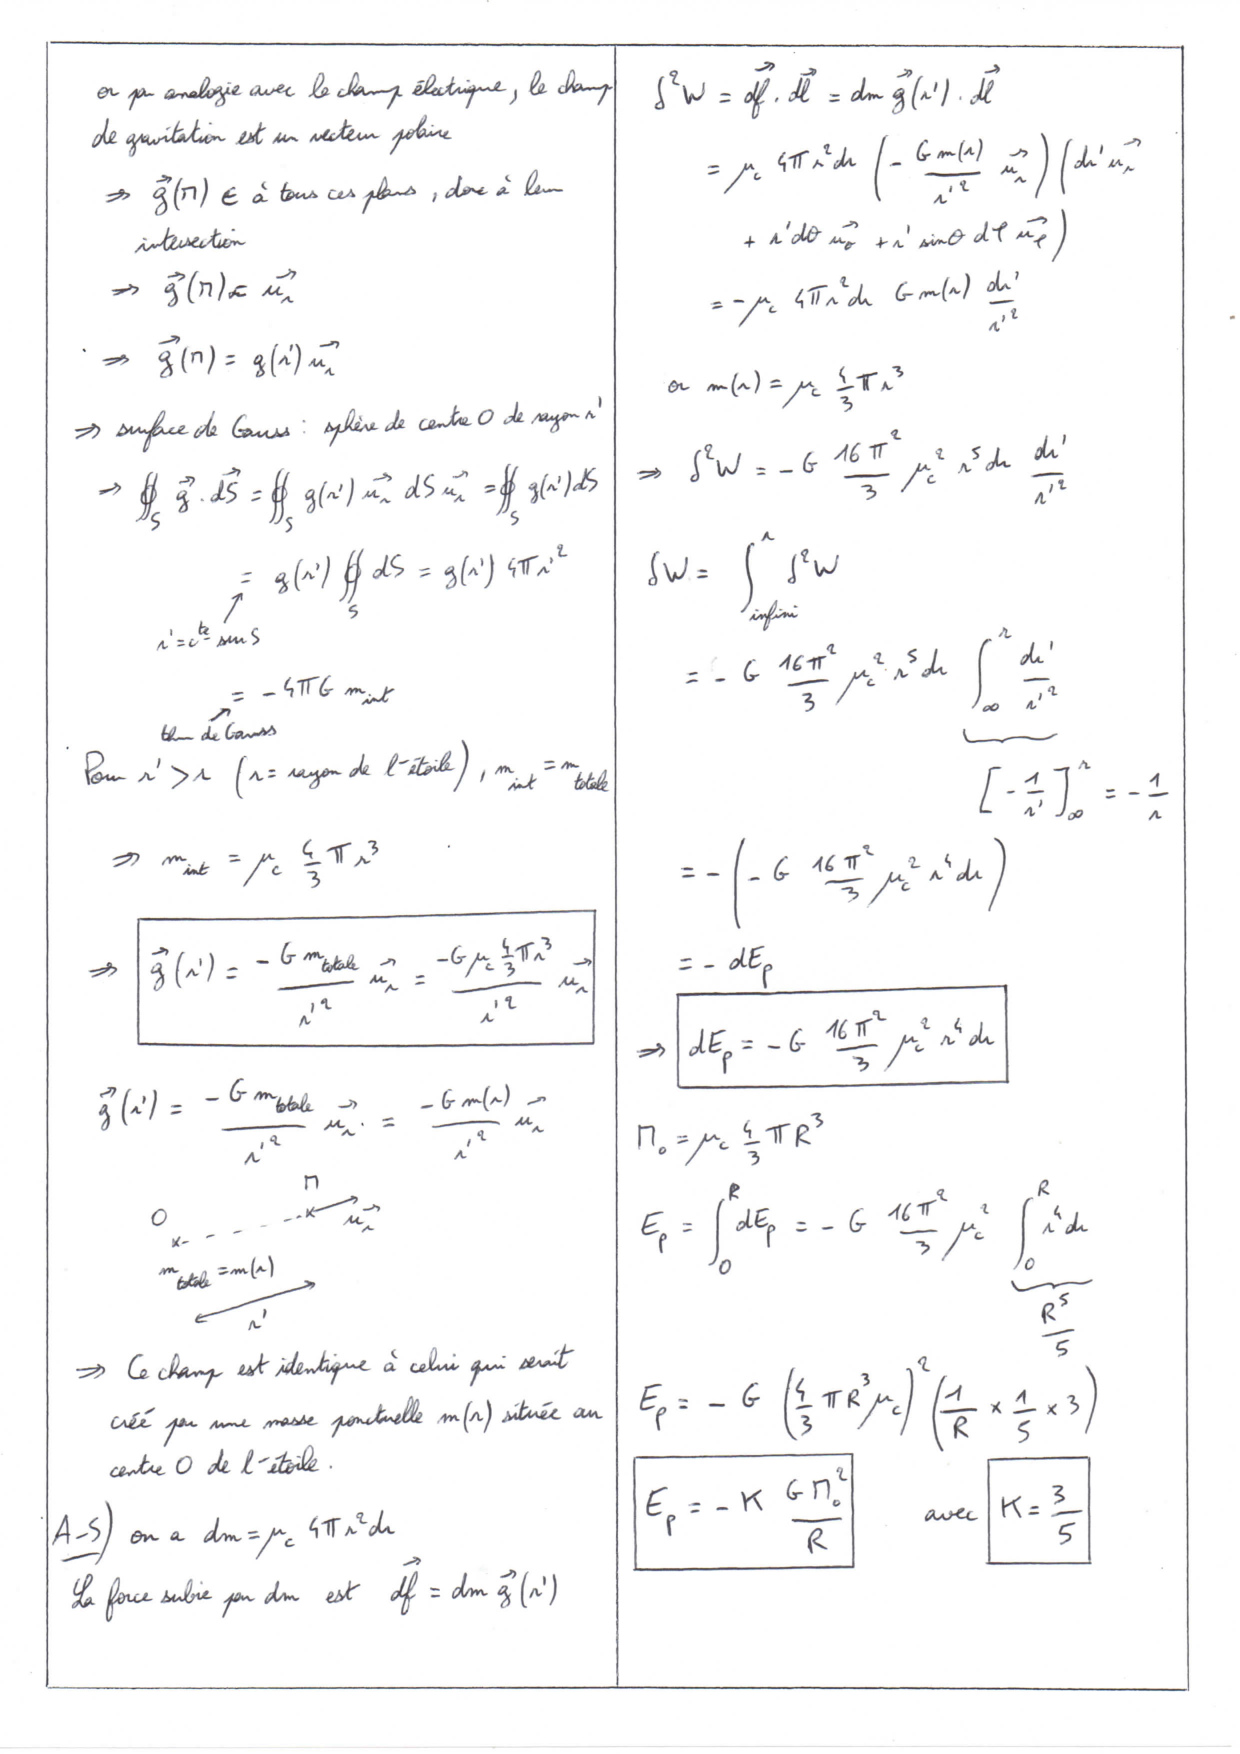 or par analogie avec le champ électrique, le champ
de gravitation est un vecteur polaire
⇒ g⃗(M) ∈ à tous ces plans, donc à leur
intersection
⇒ g⃗(M) ∝ u⃗r
⇒ g⃗(M) = g(r') u⃗r
⇒ surface de Gauss : sphère de centre O de rayon r'
→ ∯_S g⃗ . dS⃗ = ∯_S g(r') u⃗r dS u⃗r = ∯_S g(r') dS
= g(r') ∯_S dS = g(r') 4πr'²
r' = cte sur S
= - 4πG m_int
thm de Gauss
Pour r' > r (r = rayon de l'étoile), m_int = m_totale
⇒ m_int = μc 4/3 π r³
⇒ g⃗(r') = - G m_totale / r'² u⃗r = -G μc 4/3 π r³ / r'² u⃗r
g⃗(r') = - G m_totale / r'² u⃗r = - G m(r) / r'² u⃗r
M
O
u⃗r
m_totale = m(r)
r'
⇒ Ce champ est identique à celui qui serait
créé par une masse ponctuelle m(r) située au
centre O de l'étoile.
A-5) on a dm = μc 4π r² dr
La force subie par dm est df⃗ = dm g⃗(r')
δ²W = df⃗ . dl⃗ = dm g⃗(r') . dl⃗
= μc 4π r² dr (- G m(r) / r'² u⃗r) (dr' u⃗r
+ r' dθ u⃗θ + r' sinθ dφ u⃗φ)
= - μc 4π r² dr G m(r) dr' / r'²
or m(r) = μc 4/3 π r³
⇒ δ²W = - G 16π²/3 μc² r⁵ dr dr' / r'²
δW = ∫_infini^r δ²W
= - G 16π²/3 μc² r⁵ dr ∫_∞^r dr' / r'²
[- 1/r']_∞^r = - 1/r
= - (- G 16π²/3 μc² r⁴ dr)
= - dEp
⇒ dEp = - G 16π²/3 μc² r⁴ dr
M₀ = μc 4/3 π R³
Ep = ∫_0^R dEp = - G 16π²/3 μc² ∫_0^R r⁴ dr
R⁵/5
Ep = - G (4/3 π R³ μc)² (1/R × 1/5 × 3)
Ep = - K G M₀² / R avec K = 3/5